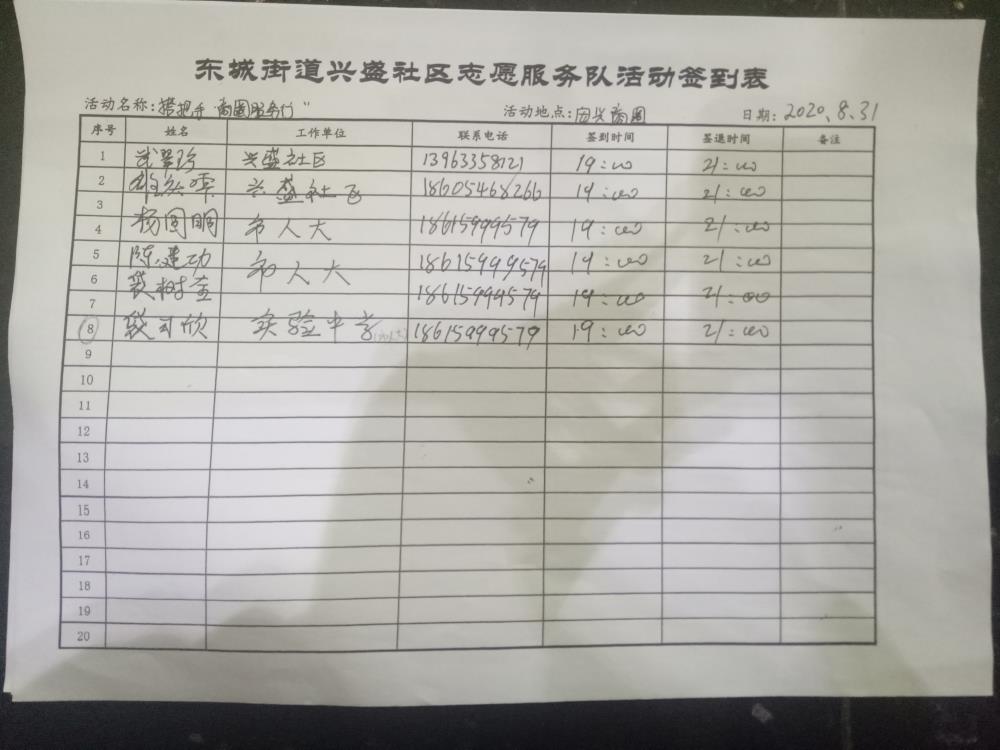 东城街道兴盛社区志愿服务队活动签到表
活动名称: 搭把手"商圈服务行" 活动地点: 商圈 日期: 2020.8.31
序号 姓名 工作单位 联系电话 签到时间 签退时间 备注
1 兴盛社区 13963358121 19:00 21:00
2 兴盛社区 18605468266 19:00 21:00
3
4 杨国明 市人大 18615999579 19:00 21:00
5 陈建功 市人大 18615999579 19:00 21:00
6 18615999579 19:00 21:00
7
8 实验中学 18615999579 19:00 21:00
9
10
11
12
13
14
15
16
17
18
19
20